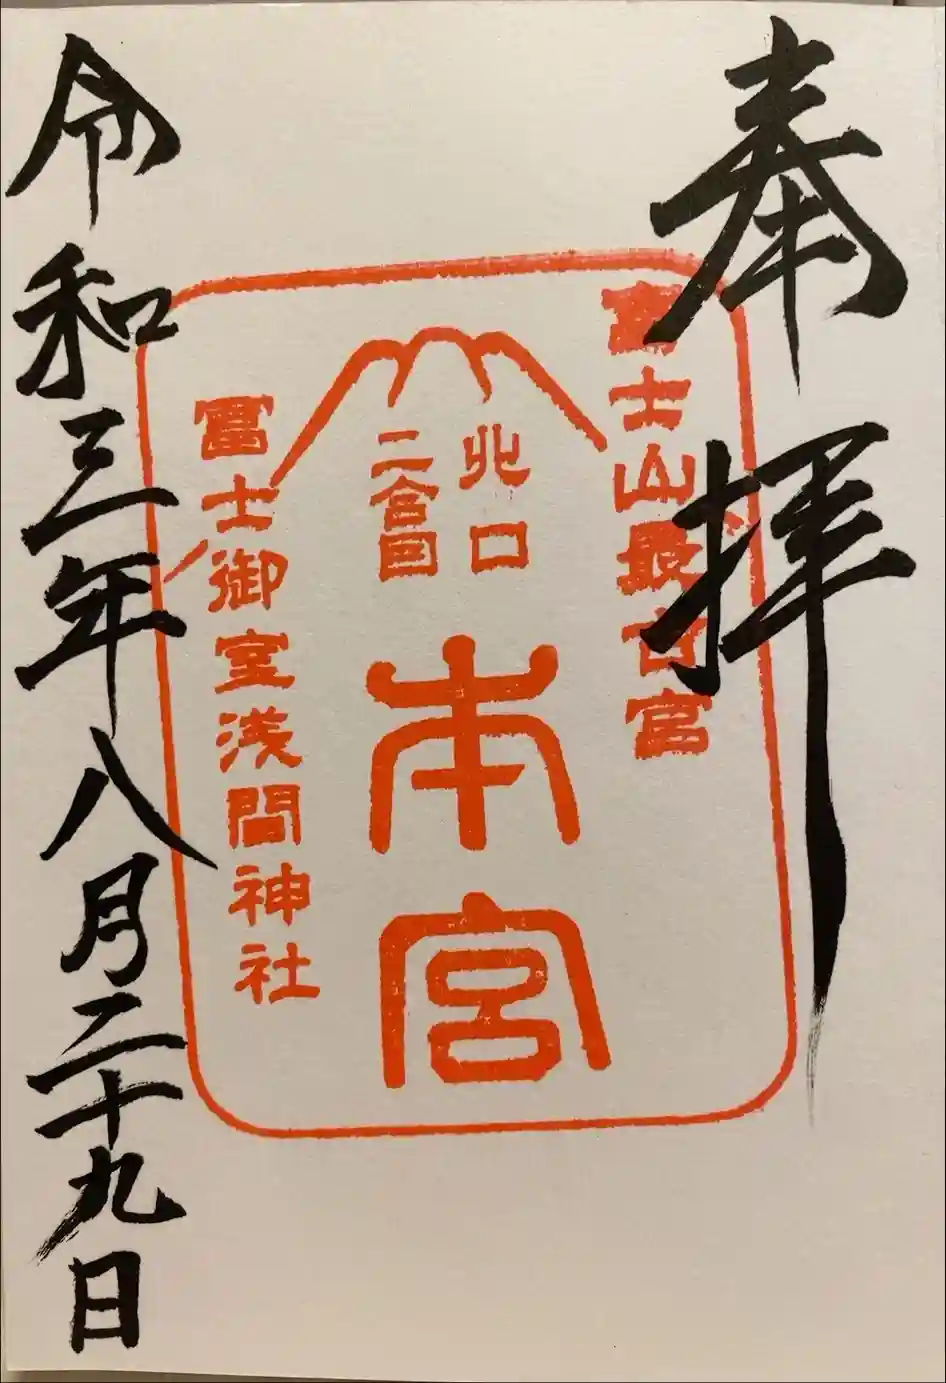 奉拝
富士山最古宮
北口
二合目
本宮
冨士御室浅間神社
令和三年八月二十九日